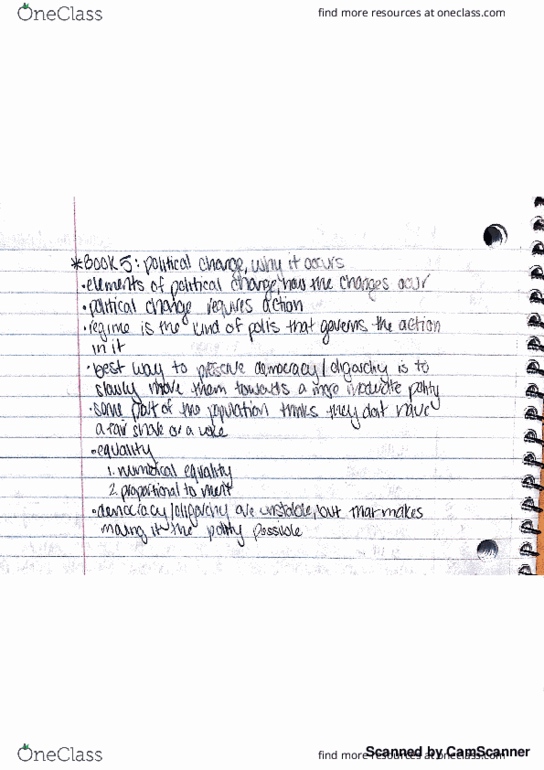 OneClass
find more resources at oneclass.com
*BOOK 5: political change, why it occurs
•elements of political change, how the changes occur
•political change requires action
•regime is the kind of polis that governs the action
in it
•best way to preserve democracy/oligarchy is to
slowly move them towards a more moderate polity
•some part of the population thinks they don't have
a fair share or a voice
•equality
1. numerical equality
2. proportional to merit
•democracy/oligarchy are unstable, but that makes
moving it the polity possible
OneClass
find more resources at oneclass.com
Scanned by CamScanner